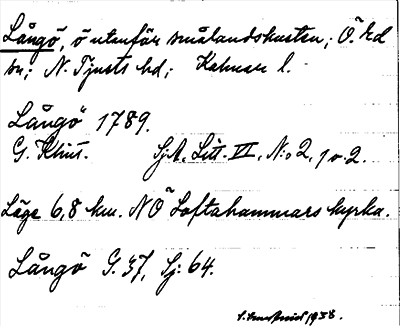 Långö, ö utanför smålandskusten; Ö. Ed
sn; N. Tjusts hd; Kalmar l.
Långö 1789.
G. Klint. SjA. Litt. VI, N:o 2, 1 o. 2.
Läge 6,8 km. NÖ Loftahammars kyrka.
Långö G. 37, Sj: 64.
1938.